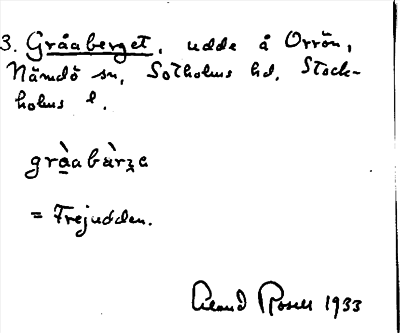 3. Gråaberget, udde å Orrön,
Nämdö sn, Sotholms hd, Stock-
holms l.
gràabàrʒa
= Frejudden.
1933